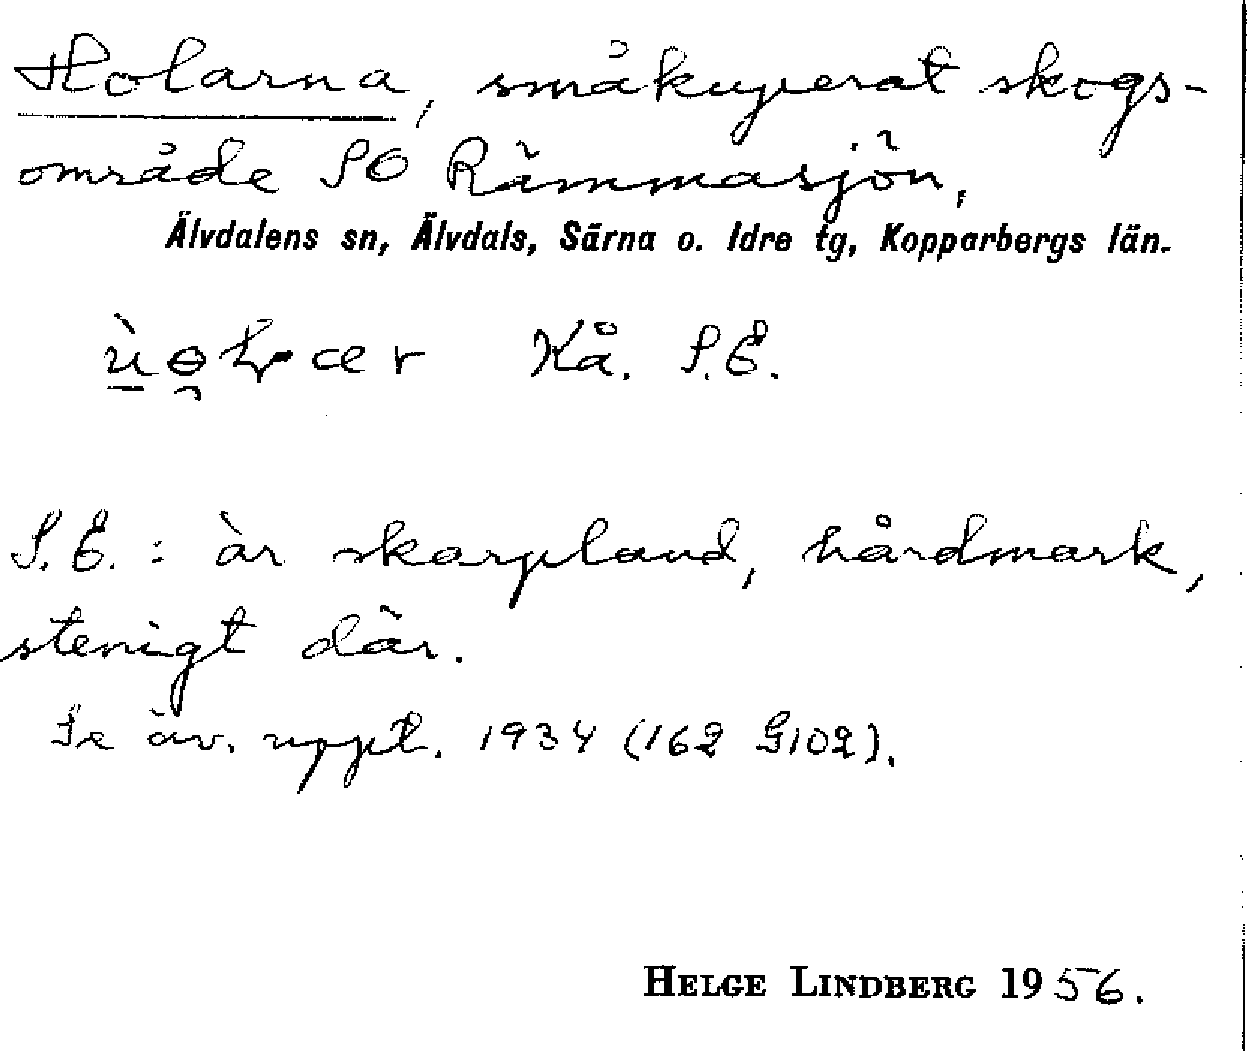 Holarna, småkuperat skogs-
område SO Rämmasjön,
Älvdalens sn, Älvdals, Särna o. Idre tg, Kopparbergs län.
Kå. S.E.
S.E. : är skarpland, hårdmark,
stenigt där.
Se äv. uppt. 1934 (162 G102).
HELGE LINDBERG 1956.